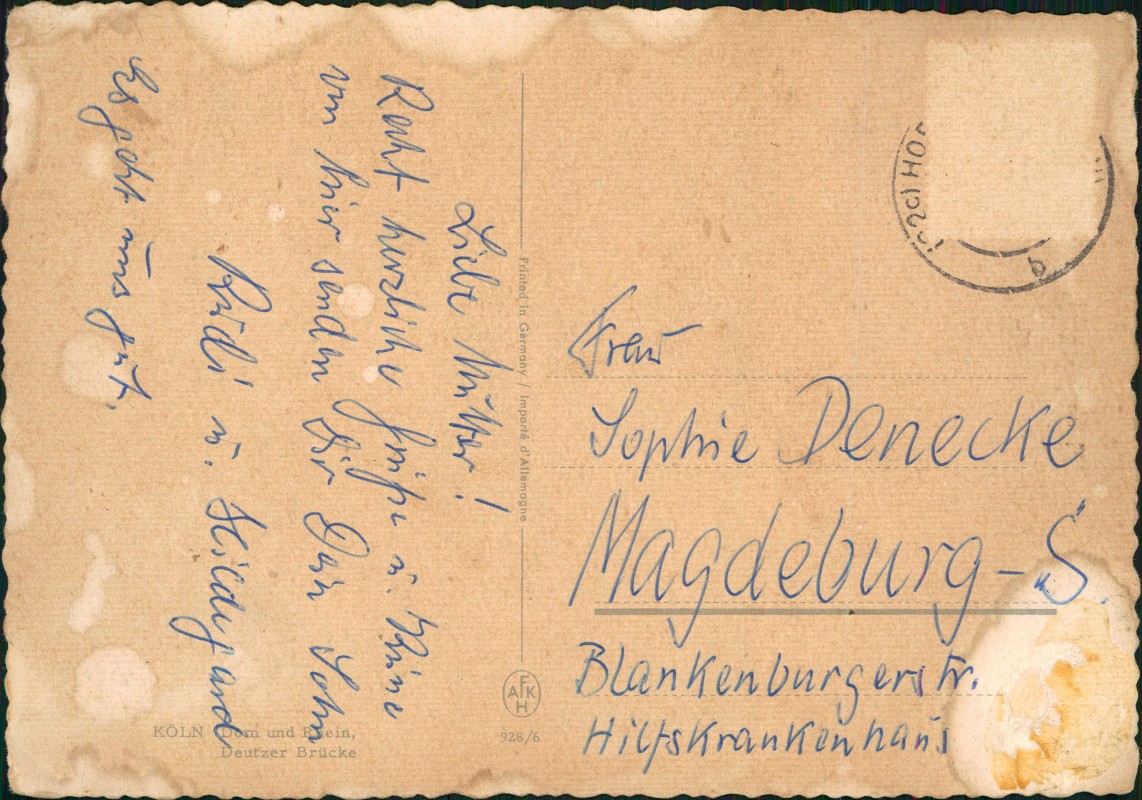 Liebe Mutter!
Recht herzliche Grüße u.
von hier senden Dir Dein Sohn
Rudi u. Hildegard
Es geht uns gut.
Printed in Germany / Importé d'Allemagne
AFKH
928/6
KÖLN Dom und Rhein,
Deutzer Brücke
(22c) HO
b
Frau
Sophie Denecke
Magdeburg - "S."
Blankenburgerstr.
Hilfskrankenhaus